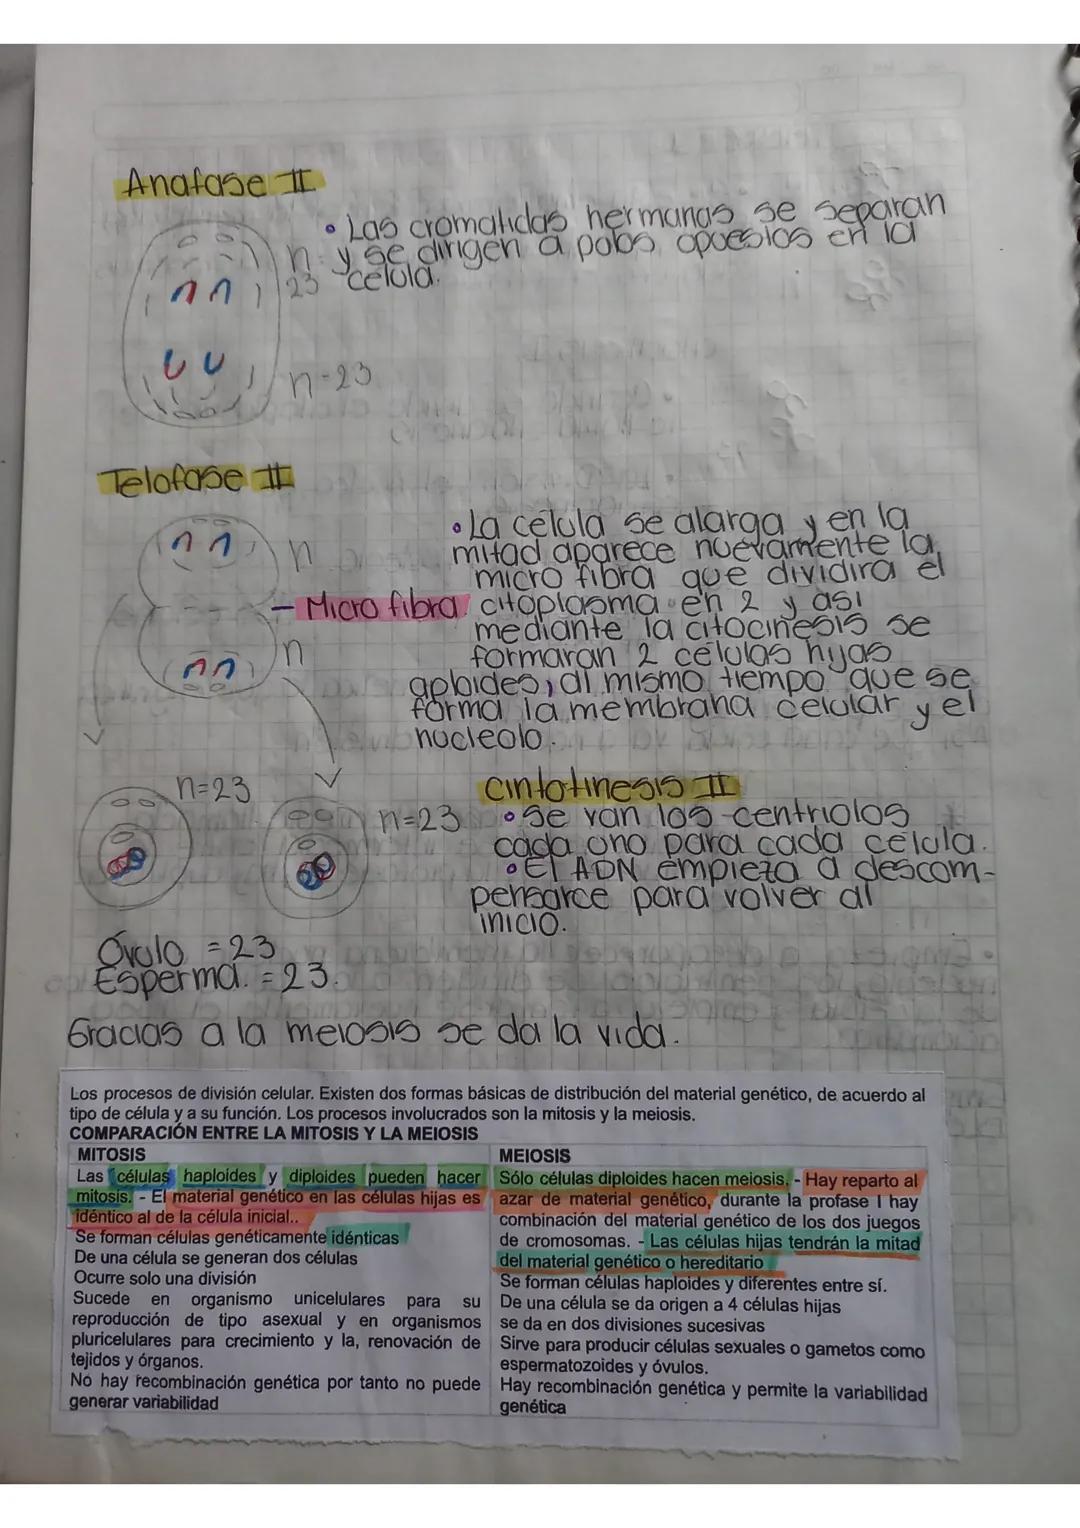 Anafase II
• Las cromatidas hermanas se separan
n y se dirigen a polos opuestos en la
23 celula.
n=23
Telofase II
• La celula se alarga y en la
n mitad aparece nuevamente la
micro fibra que dividira el
- Micro fibra citoplasma en 2 y asi
mediante la citocinesis se
n formaran 2 celulas hijas
aploides, al mismo tiempo que se
forma la membrana celular y el
nucleolo.
n=23
n=23
cintotinesis II
• Se van los centriolos
cada uno para cada celula.
• El ADN empieza a descom-
pensarce para volver al
inicio.
Óvulo = 23
Esperma. = 23.
Gracias a la meiosis se da la vida.
Los procesos de división celular. Existen dos formas básicas de distribución del material genético, de acuerdo al
tipo de célula y a su función. Los procesos involucrados son la mitosis y la meiosis.
COMPARACIÓN ENTRE LA MITOSIS Y LA MEIOSIS
MITOSIS
Las células haploides y diploides pueden hacer
mitosis. - El material genético en las células hijas es
idéntico al de la célula inicial..
Se forman células genéticamente idénticas
De una célula se generan dos células
Ocurre solo una división
Sucede en organismo unicelulares para su
reproducción de tipo asexual y en organismos
pluricelulares para crecimiento y la, renovación de
tejidos y órganos.
No hay recombinación genética por tanto no puede
generar variabilidad
MEIOSIS
Sólo células diploides hacen meiosis. - Hay reparto al
azar de material genético, durante la profase I hay
combinación del material genético de los dos juegos
de cromosomas. - Las células hijas tendrán la mitad
del material genético o hereditario
Se forman células haploides y diferentes entre sí.
De una célula se da origen a 4 células hijas
se da en dos divisiones sucesivas
Sirve para producir células sexuales o gametos como
espermatozoides y óvulos.
Hay recombinación genética y permite la variabilidad
genética